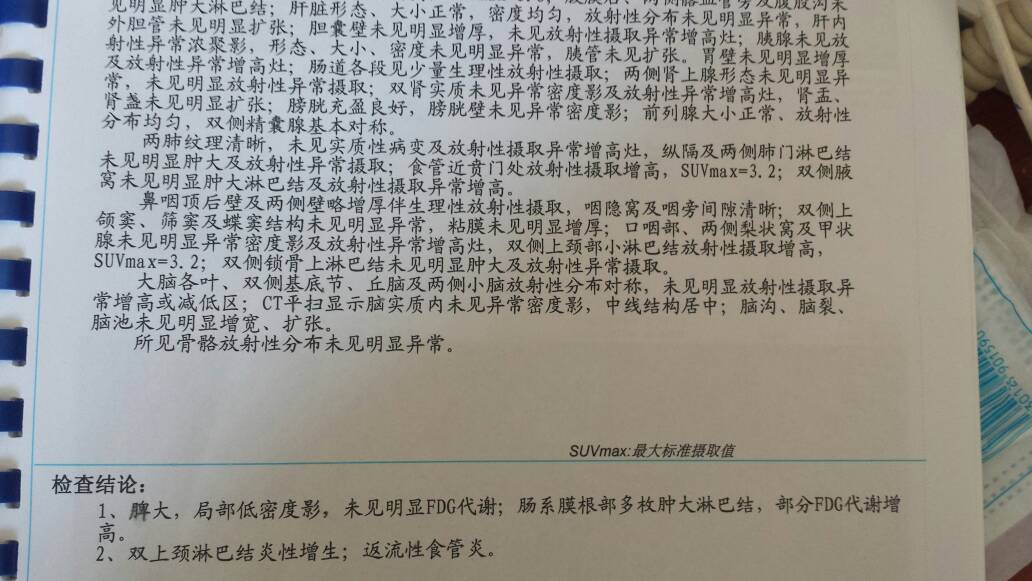 见明显肿大淋巴结；肝脏形态、大小正常，密度均匀，放射性分布未见明显异常，肝内
外胆管未见明显扩张；胆囊壁未见明显增厚，未见放射性摄取异常增高灶；胰腺未见放
射性异常浓聚影，形态、大小、密度未见明显异常，胰管未见扩张。胃壁未见明显增厚
及放射性异常增高灶；肠道各段见少量生理性放射性摄取；两侧肾上腺形态未见明显异
常，未见明显放射性异常摄取；双肾实质未见异常密度影及放射性异常增高灶，肾盂、
肾盏未见明显扩张；膀胱充盈良好，膀胱壁未见异常密度影；前列腺大小正常、放射性
分布均匀，双侧精囊腺基本对称。
两肺纹理清晰，未见实质性病变及放射性摄取异常增高灶，纵隔及两侧肺门淋巴结
未见明显肿大及放射性异常摄取；食管近贲门处放射性摄取增高，SUVmax=3.2；双侧腋
窝未见明显肿大淋巴结及放射性摄取异常增高。
鼻咽顶后壁及两侧壁略增厚伴生理性放射性摄取，咽隐窝及咽旁间隙清晰；双侧上
颌窦、筛窦及蝶窦结构未见明显异常，粘膜未见明显增厚；口咽部、两侧梨状窝及甲状
腺未见明显异常密度影及放射性异常增高灶，双侧上颈部小淋巴结放射性摄取增高，
SUVmax=3.2；双侧锁骨上淋巴结未见明显肿大及放射性异常摄取。
大脑各叶、双侧基底节、丘脑及两侧小脑放射性分布对称，未见明显放射性摄取异
常增高或减低区；CT平扫显示脑实质内未见异常密度影，中线结构居中；脑沟、脑裂、
脑池未见明显增宽、扩张。
所见骨骼放射性分布未见明显异常。
SUVmax:最大标准摄取值
检查结论：
1、脾大，局部低密度影，未见明显FDG代谢；肠系膜根部多枚肿大淋巴结，部分FDG代谢增
高。
2、双上颈淋巴结炎性增生；返流性食管炎。